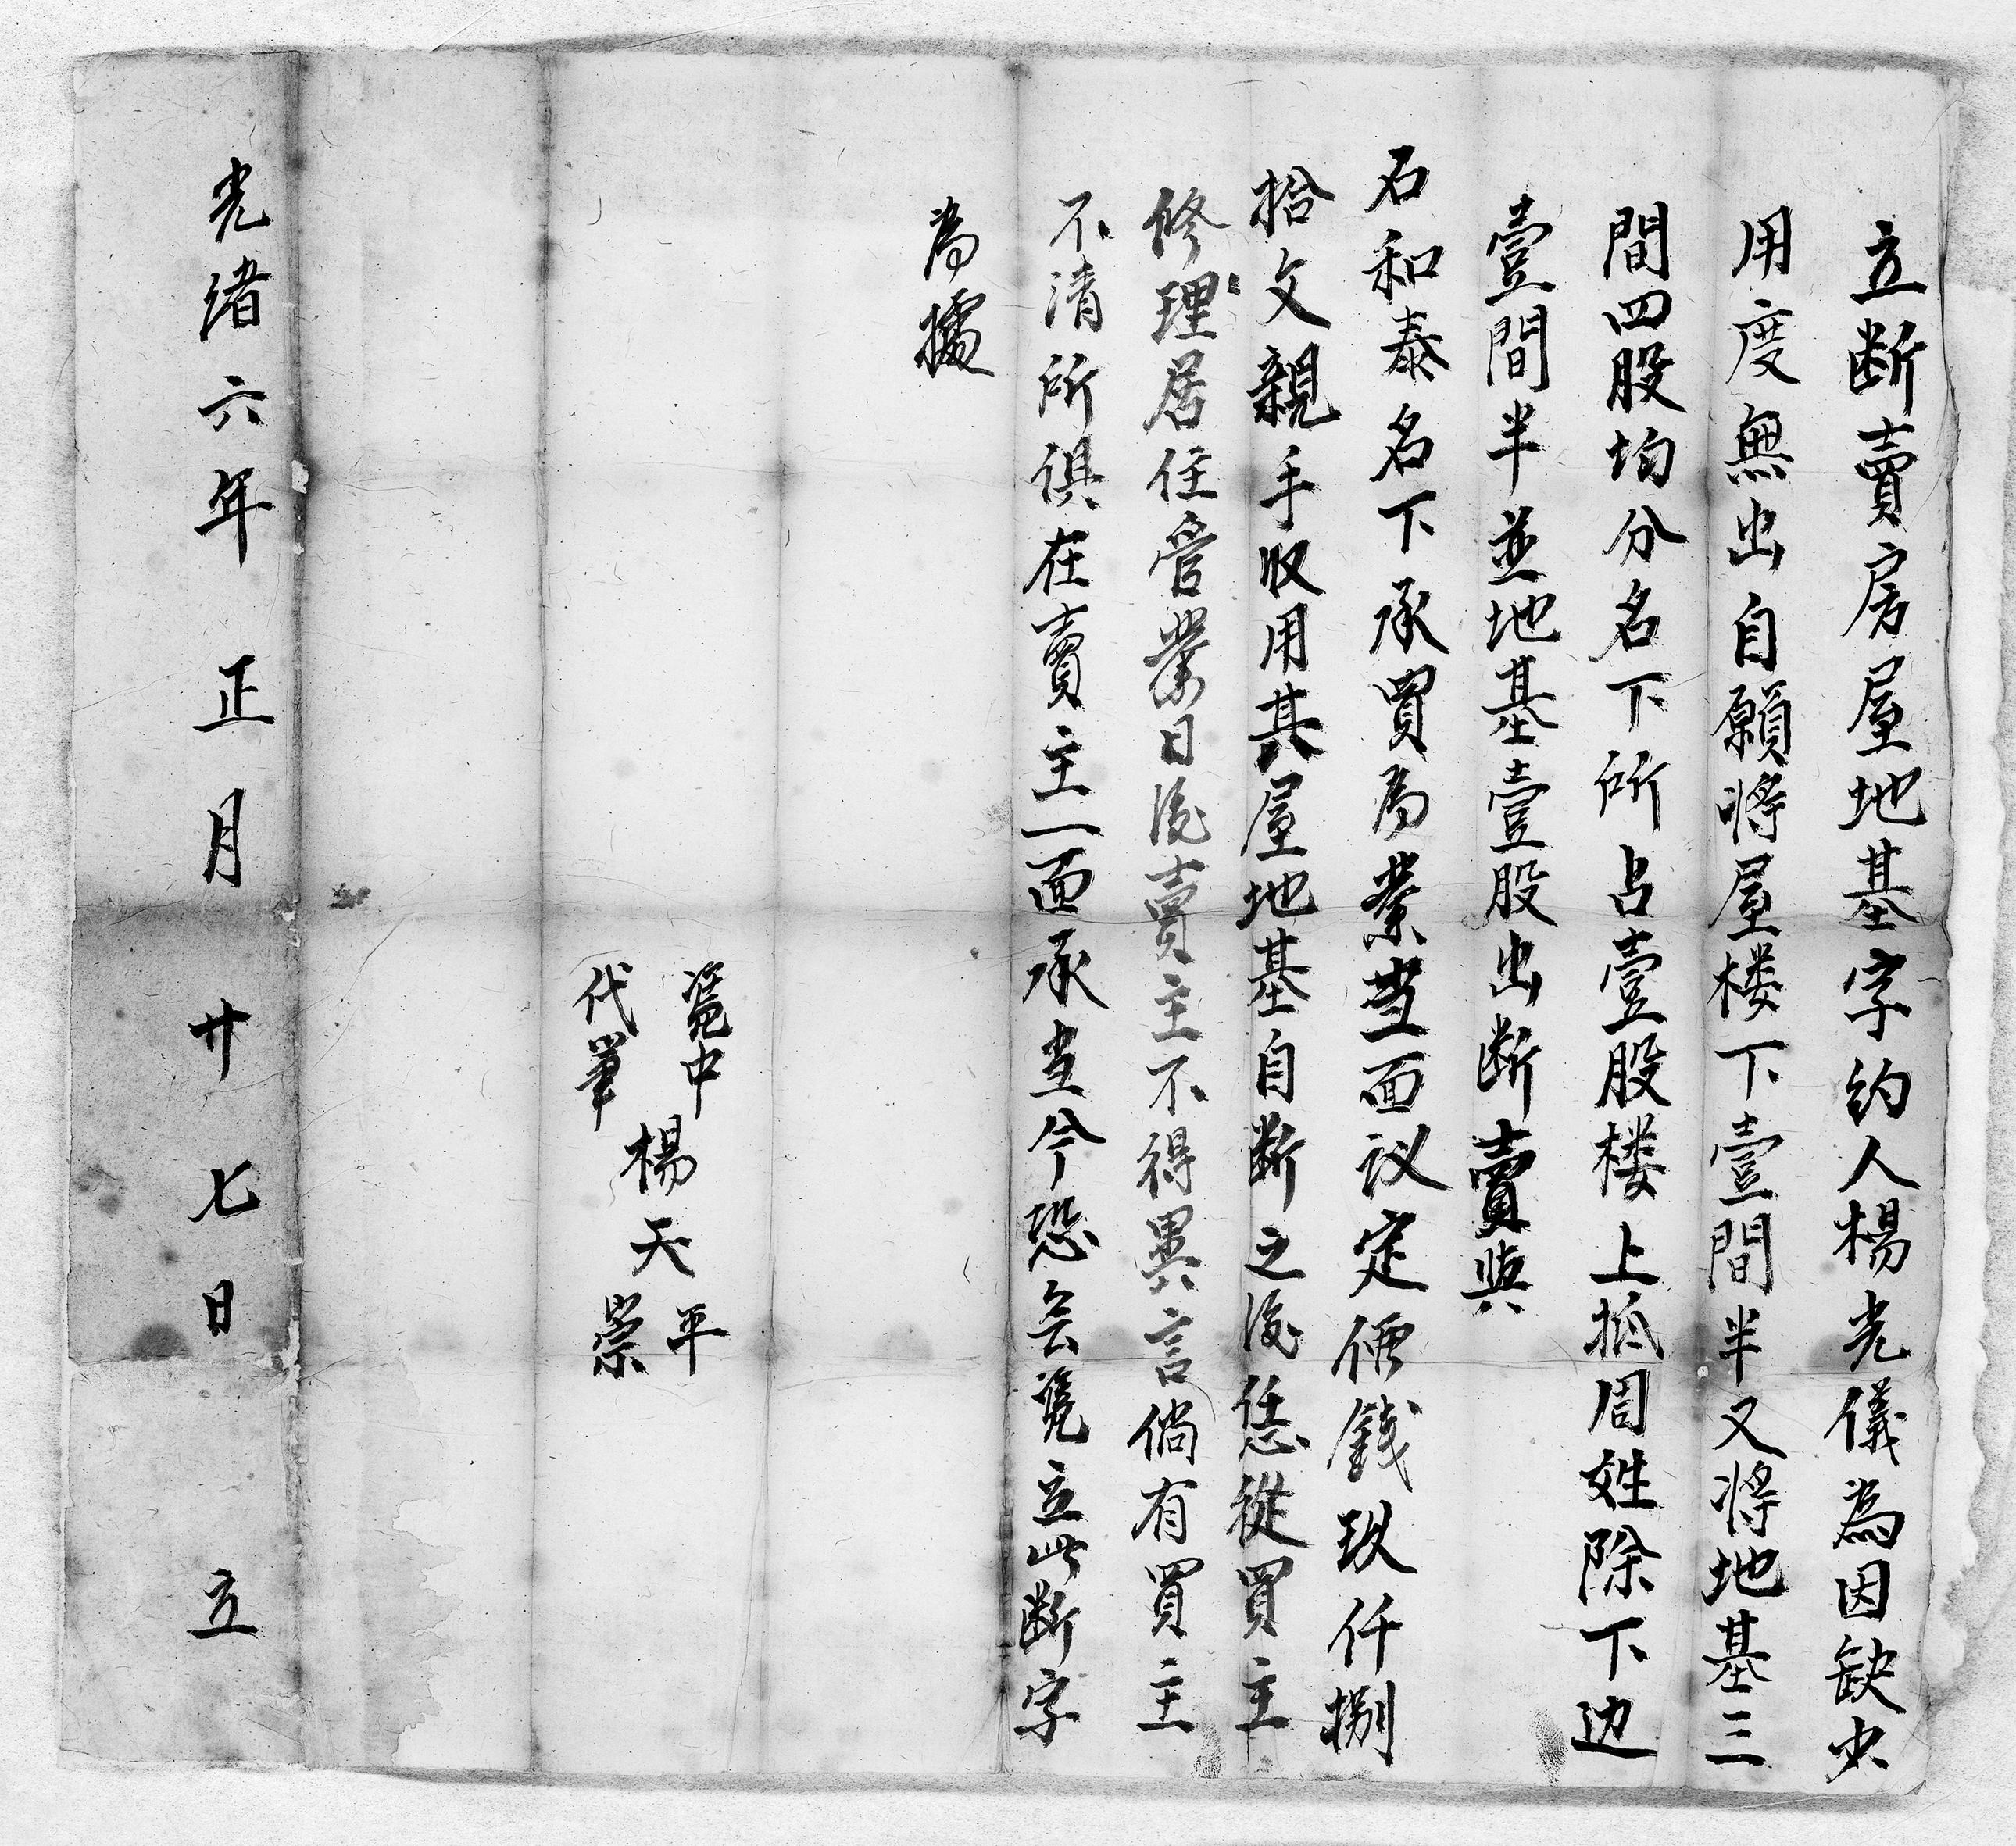 立断賣房屋地基字約人楊光儀為因缺少
用度無出自願將屋楼下壹間半又將地基三
間四股均分名下所占壹股楼上抵周姓除下边
壹間半並地基壹股出断賣與
石和泰名下承買為業当面议定価錢玖仟捌
拾文親手收用其屋地基自断之後恁從買主
修理居住管業日後賣主不得異言倘有買主
不清所俱在賣主一面承当今恐無凭立此断字
為據
凴中
代筆
楊天平
崇
光绪六年正月廿七日立